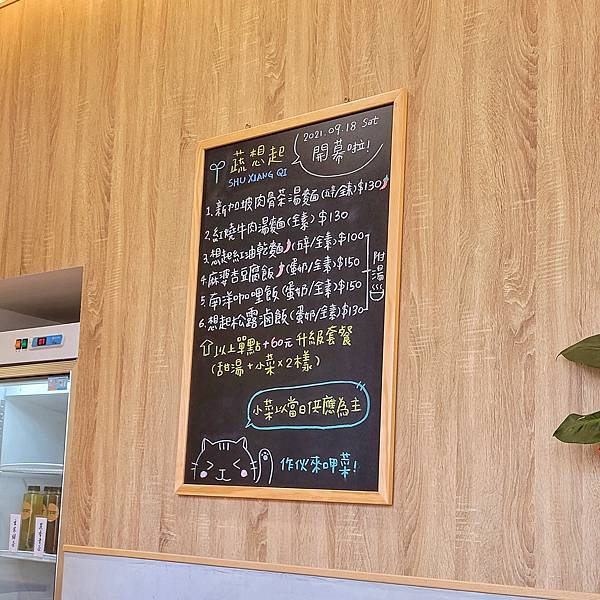 蔬想起
SHU XIANG QI
2021.09.18 Sat
開幕啦!
1.新加坡肉骨茶湯麵(碎/全素)$130
2.紅燒牛肉湯麵(全素)$130
3.想起紅油乾麵(碎/全素)$100
4.麻婆吉豆腐飯(蛋奶/全素)$150
5.南洋咖哩飯(蛋奶/全素)$150
6.想起松露滷飯(蛋奶/全素)$130
附湯
以上單點+60元升級套餐
(甜湯+小菜×2樣)
小菜以當日供應為主
作伙來呷菜!